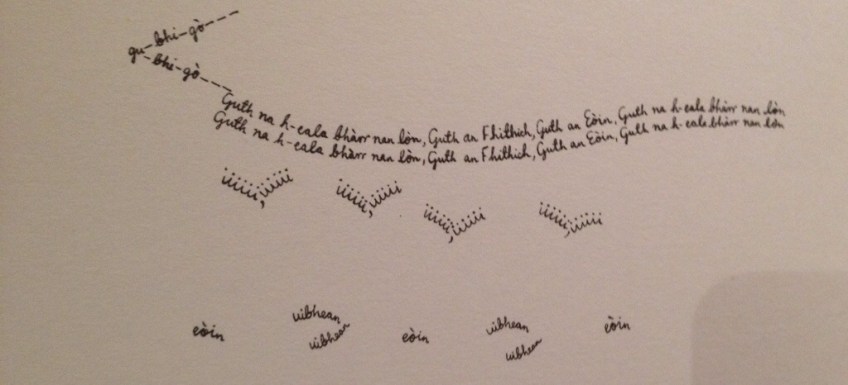 gu-bhi-gò---
-bhi-gò---
Guth na h-eala bhàrr nan lòn, Guth an Fhithich, Guth an Eòin, Guth na h-eala bhàrr nan lòn
Guth na h-eala bhàrr nan lòn, Guth an Fhithich, Guth an Eòin, Guth na h-eala bhàrr nan lòn
iiiiii,iiiiii iiiiii,iiiiii iiiiii,iiiiii iiiiii,iiiiii
eòin uibhean eòin uibhean eòin
uibhean uibhean